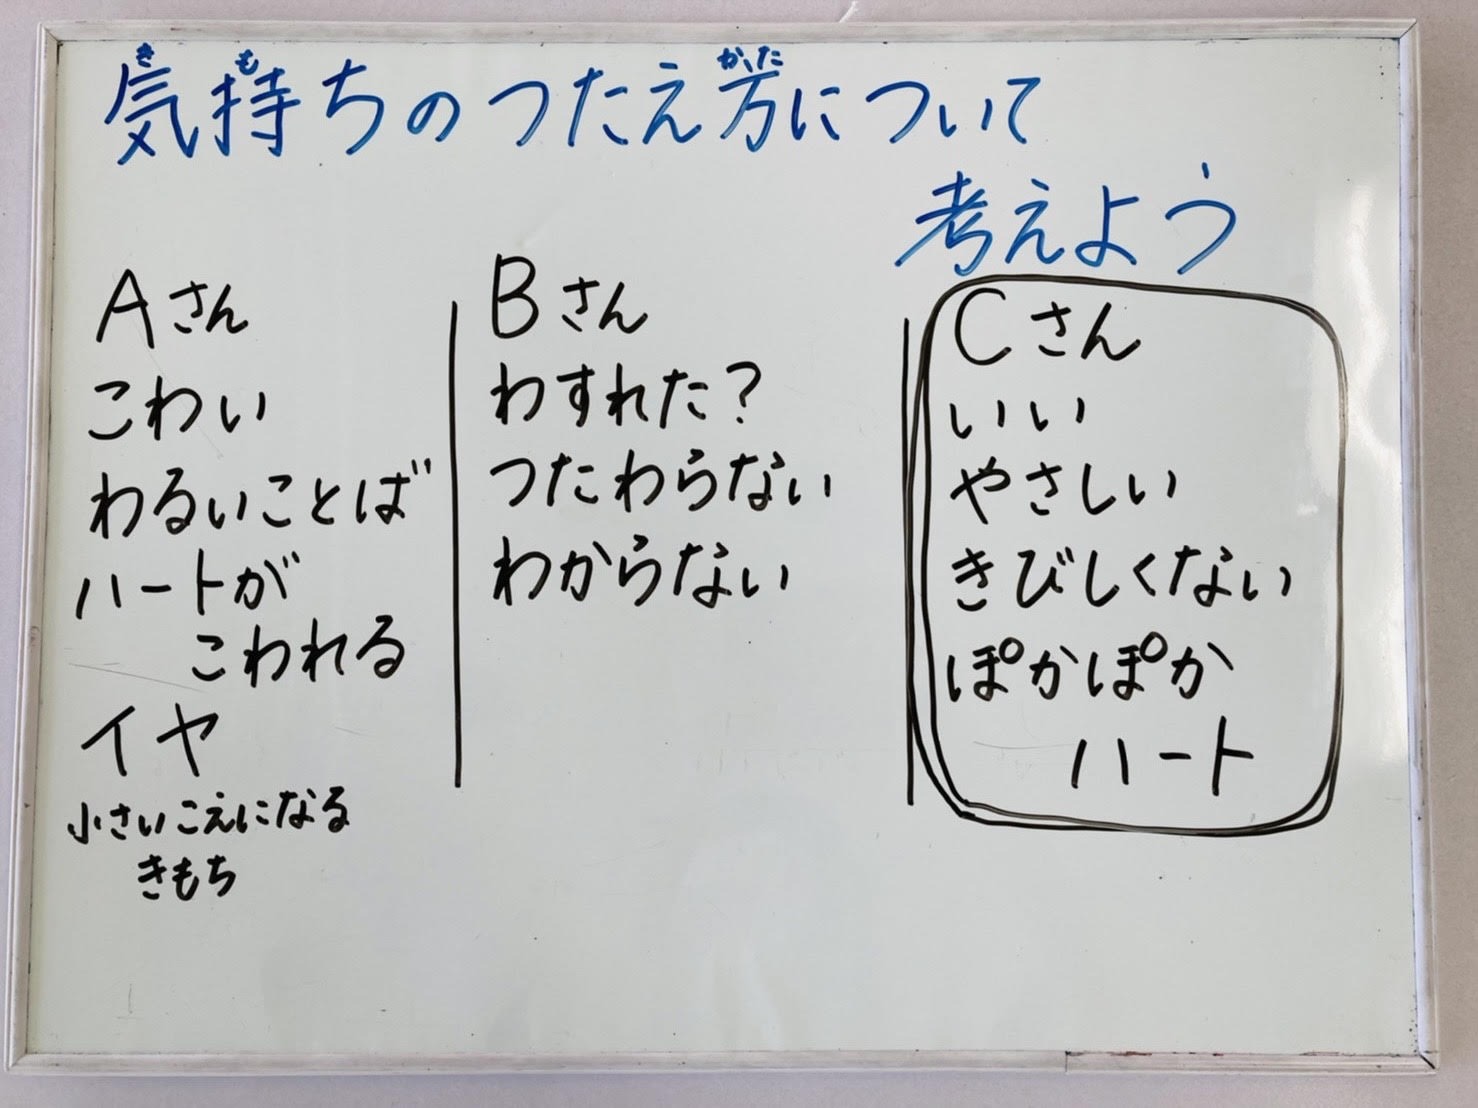 気持ちのつたえ方について
考えよう
Aさん
こわい
わるいことば
ハートが
こわれる
イヤ
小さいこえになる
きもち
Bさん
わすれた？
つたわらない
わからない
Cさん
いい
やさしい
きびしくない
ぽかぽか
ハート